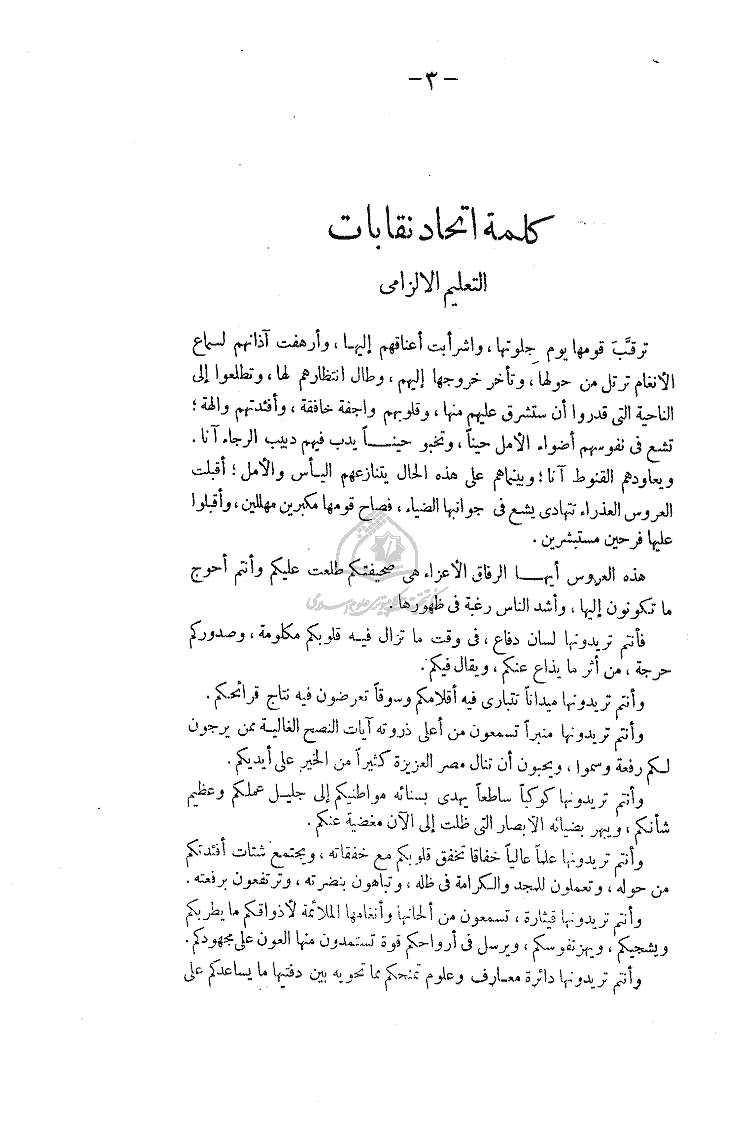 — ٣ —
كلمة اتحاد نقابات
التعليم الالزامى
ترقَّبَ قومها يوم جلوتها ، واشرأبت أعناقهم إليهـا ، وأرهفت آذانهم لسماع
الأنغام ترتل من حولها ، وتأخر خروجها إليهم ، وطال انتظارهم لها ، وتطلعوا إلى
الناحية التى قدروا أن ستشرق عليهم منها ، وقلوبهم واجفة خافقة ، وأفئدتهم والهة ؛
تشع فى نفوسهم أضواء الامل حيناً ، وتخبو حينــــاً يدب فيهم دبيب الرجاء آنا .
ويعاودهم القنوط آنا ؛ وبينماهم على هذه الحال يتنازعهم اليـأس والأمل ؛ أقبلت
العروس العذراء تتهادى يشع فى جوانبها الضياء ، فصاح قومها مكبرين مهللين ، وأقبلوا
عليها فرحين مستبشرين .
هذه العروس أيهــا الرفاق الأعزاء هى صحيفتكم طلعت عليكم وأنتم أحوج
ما تكونون إليها ، وأشد الناس رغبة فى ظهورها .
فأنتم تريدونها لسان دفاع ، فى وقت ما تزال فيـه قلوبكم مكلومة ، وصدوركم
حرجة ، من أثر ما يذاع عنكم ، ويقال فيكم .
وأنتم تريدونها ميداناً تتبارى فيه أقلامكم وسوقاً تعرضون فيه نتاج قرائحكم .
وأنتم تريدونها منبراً تسمعون من أعلى ذروته آيات النصح الغاليـة ممن يرجون
لـكم رفعة وسموا ، ويحبون أن تنال مصر العزيزة كثيراً من الخير على أيديكم .
وأنتم تريدونها كوكباً ساطعاً يهدى بسنائه مواطنيكم إلى جليـل عملكم وعظيم
شأنكم ، ويبهر بضيائه الابصار التى ظلت إلى الآن مغضية عنكم .
وأنتم تريدونها علماً عالياً خفاقا تخفق قلوبكم مع خفقاته ، ويجتمع شتات أفئدتكم
من حوله ، وتعملون للمجد والـكرامة فى ظله ، وتباهون بنضرته ، وترتفعون برفعته .
وأنتم تريدونها قيثارة ، تسمعون من ألحانها وأنغامها الملائمة لأذواقكم ما يطربكم
ويشجيكم ، ويهز نفوسكم ، ويرسل فى أرواحكم قوة تستمدون منها العون على مجهودكم .
وأنتم تريدونها دائرة معـارف وعلوم تمنحكم مما تحويه بين دفتيها ما يساعدكم على